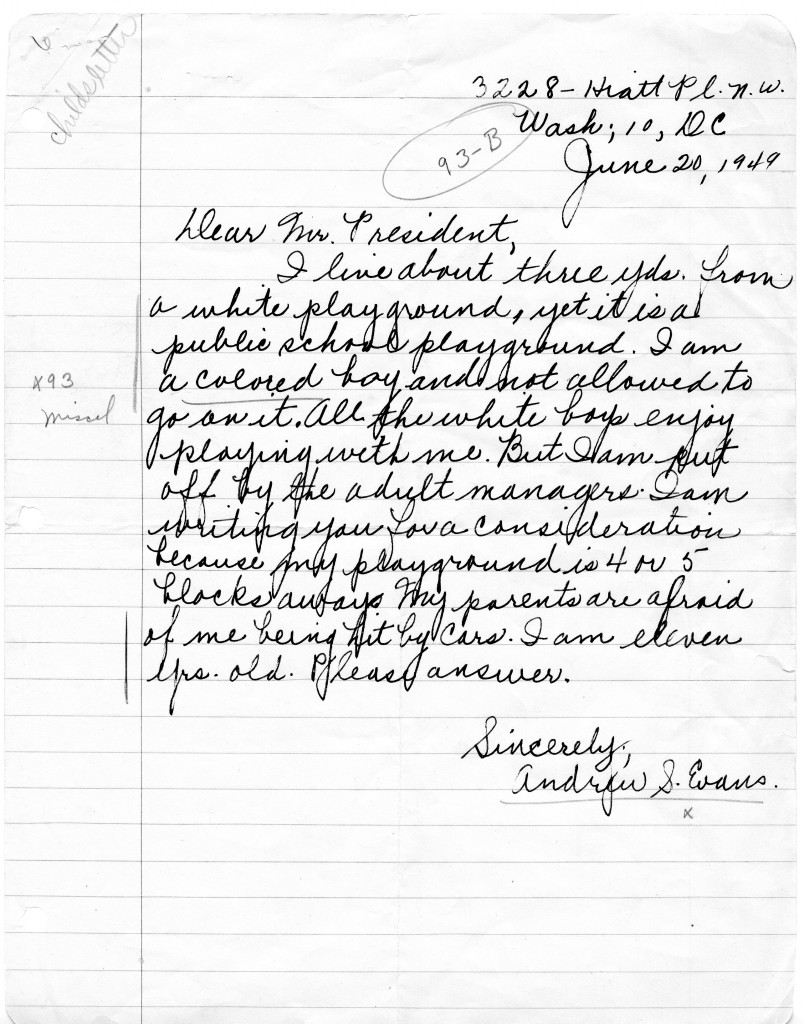 child's letter
3228 - Hiatt Pl. N.W.
Wash; 10, DC
93-B
June 20, 1949
Dear Mr. President,
I live about three yds. from
a white playground, yet it is a
public school playground. I am
x93
a colored boy and not allowed to
go on it. All the white boys enjoy
playing with me. But I am put
off by the adult managers. I am
writing you for a consideration
because my playground is 4 or 5
blocks aways. My parents are afraid
of me being hit by cars. I am eleven
yrs. old. Please answer.
Sincerely,
Andrew S. Evans.
x